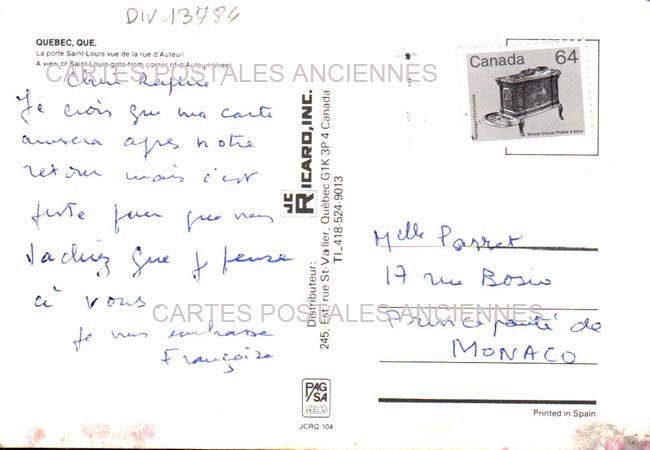 DIV-13784
QUEBEC, QUE.
La porte Saint-Louis vue de la rue d'Auteuil
A view of Saint-Louis gate from corner of d'Auteuil street
CARTES POSTALES ANCIENNES
Chère
Je crois que ma carte
arrivera après notre
retour mais c'est
juste pour que vous
sachiez que je pense
à vous
Je vous embrasse
Françoise
CARTES POSTALES ANCIENNES
Distributeur:
JC RICARD, INC.
245, Est, rue St-Vallier, Québec G1K 3P4 Canada
Tl. 418-524-9013
PAG
SA
JCRQ 104
Canada 64
Wood Stove/Poêle à bois
Melle Parret
17 rue Bosio
Principauté de
MONACO
Printed in Spain